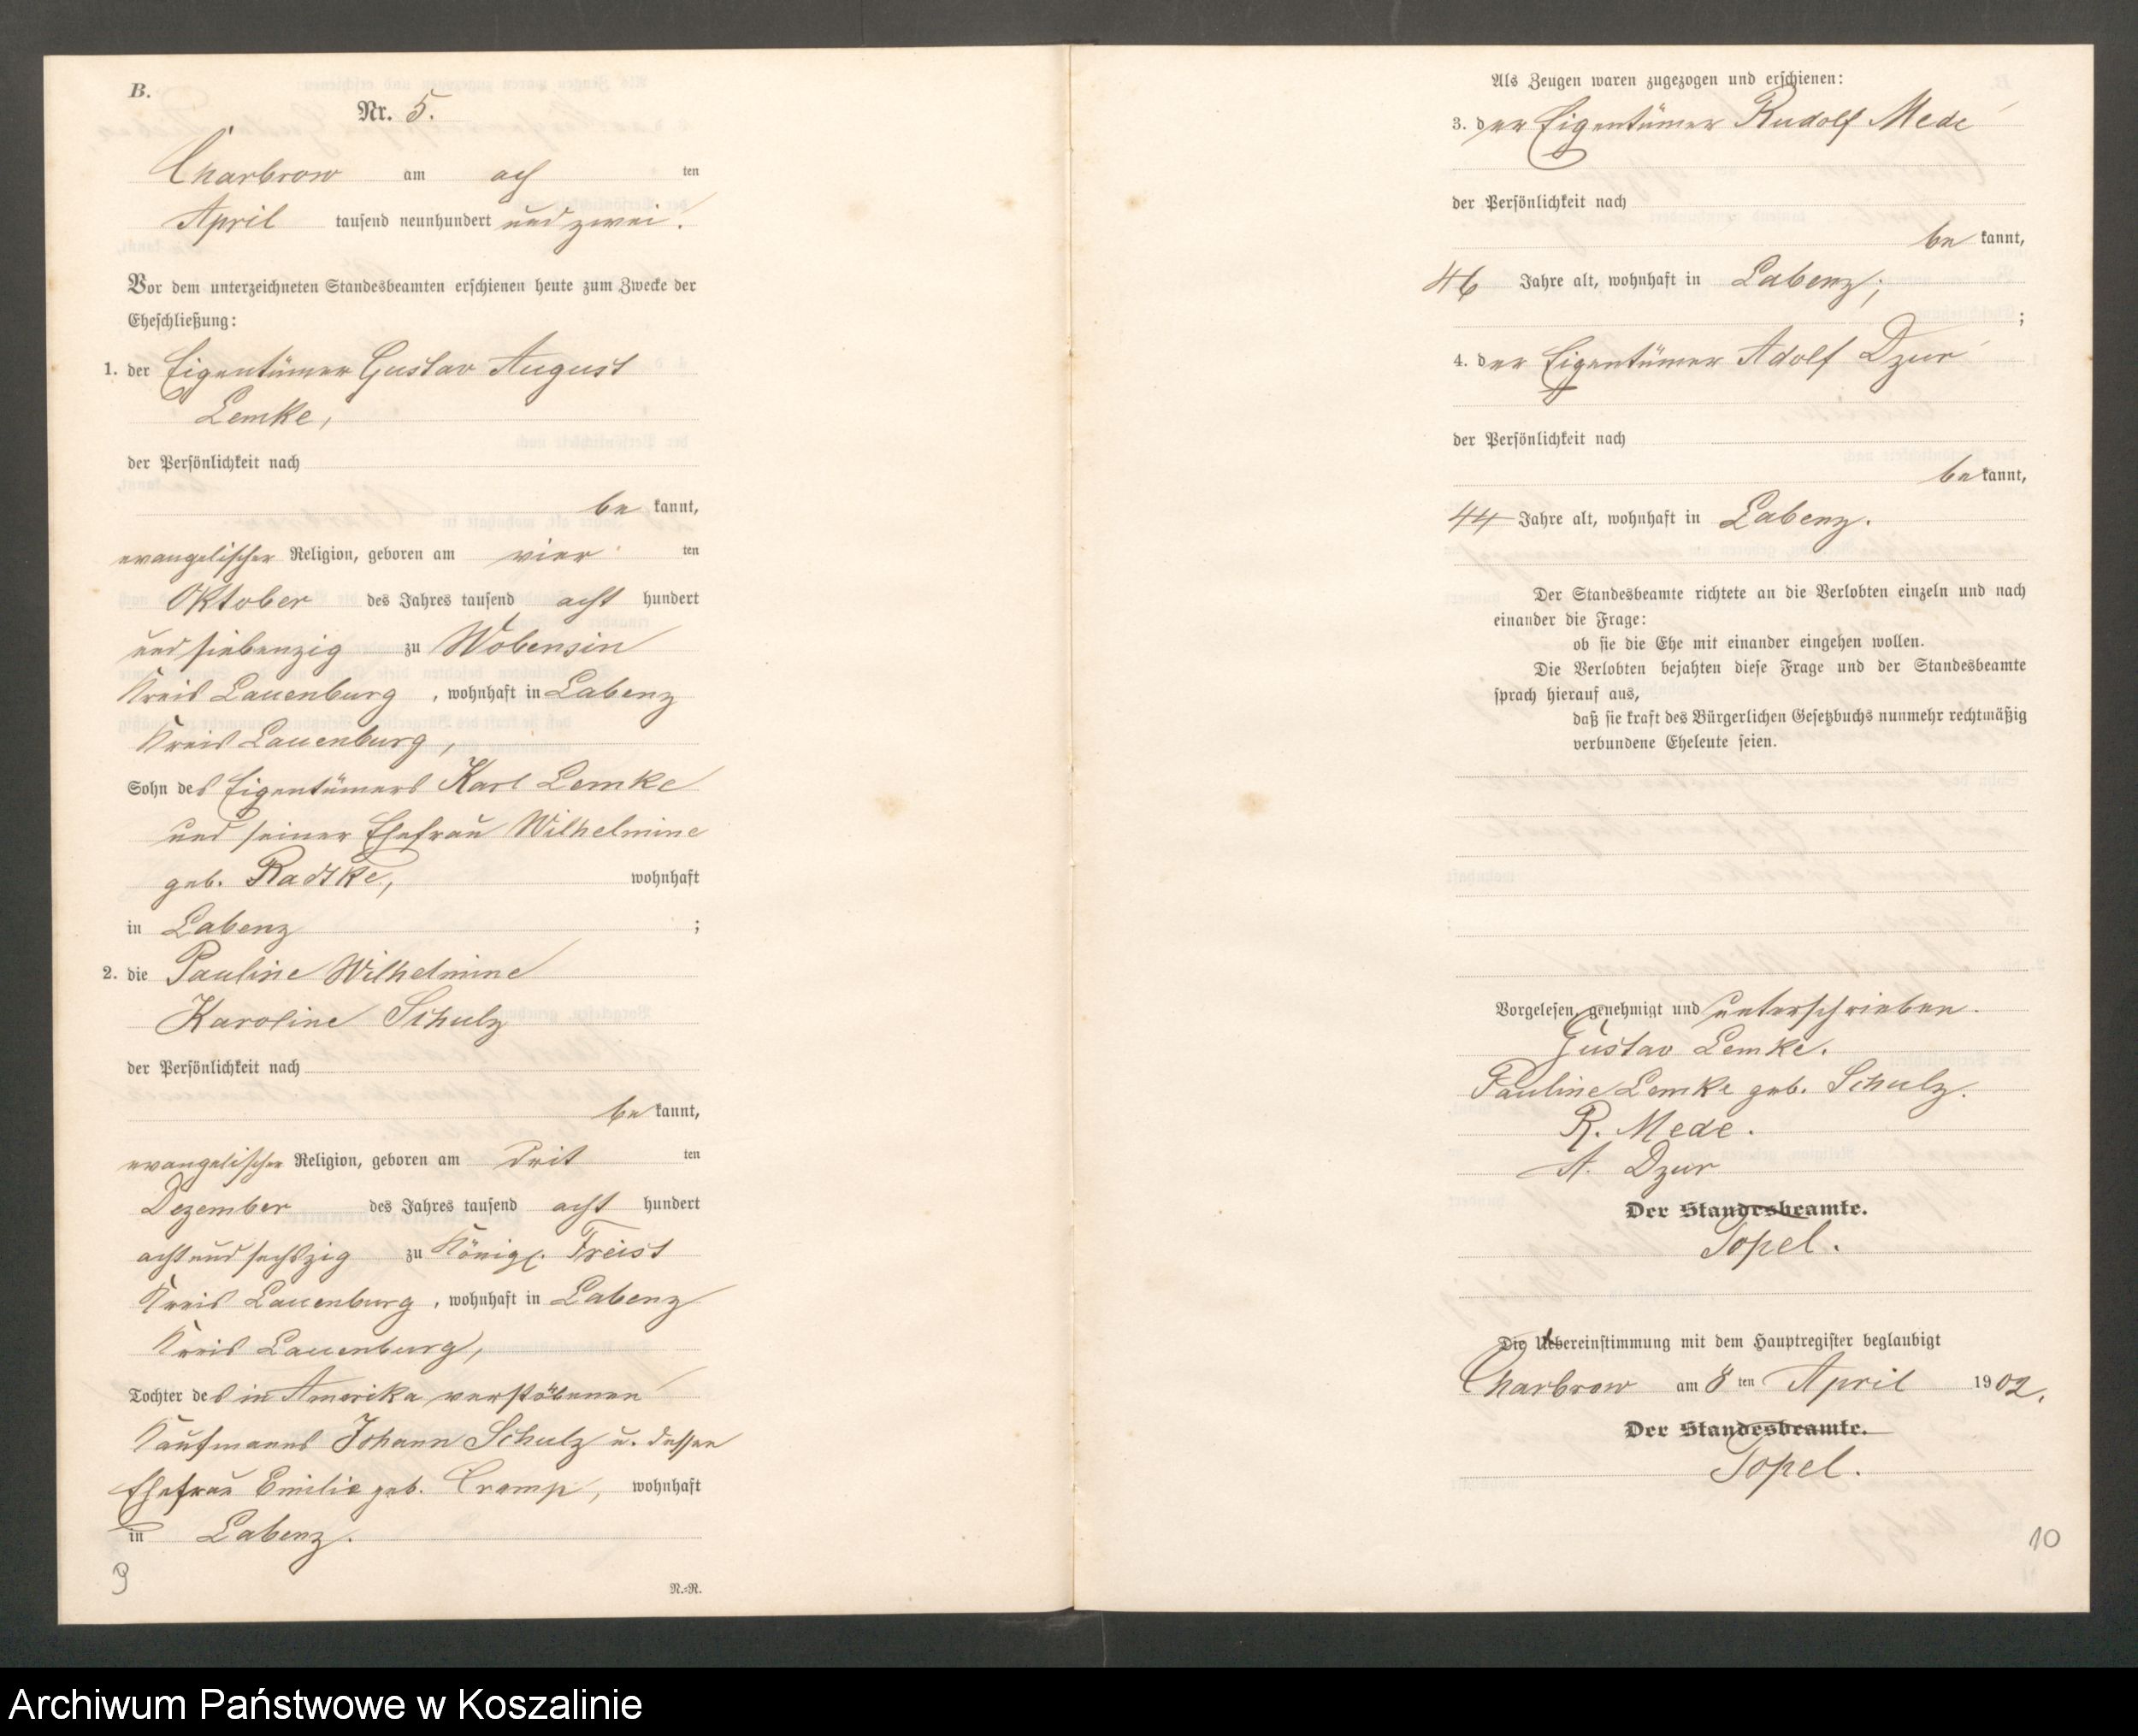 B.
Nr. 5.
Charbrow am ach ten
April tausend neunhundert und zwei.
Vor dem unterzeichneten Standesbeamten erschienen heute zum Zwecke der
Eheschließung:
1. der Eigentümer Gustav August
Lemke,
der Persönlichkeit nach
be kannt,
evangelischer Religion, geboren am vier ten
Oktober des Jahres tausend acht hundert
und siebenzig zu Wobensin
Kreis Lauenburg, wohnhaft in Labenz
Kreis Lauenburg,
Sohn des Eigentümers Karl Lemke
und seiner Ehefrau Wilhelmine
geb. Radtke, wohnhaft
in Labenz ;
2. die Pauline Wilhelmine
Karoline Schulz
der Persönlichkeit nach
be kannt,
evangelischer Religion, geboren am drit ten
Dezember des Jahres tausend acht hundert
acht und sechszig zu Königl. Freist
Kreis Lauenburg, wohnhaft in Labenz
Kreis Lauenburg,
Tochter des in Amerika verstorbenen
Kaufmanns Johann Schulz u. dessen
Ehefrau Emilie geb. Cramp, wohnhaft
in Labenz.
9
N.-R.
Als Zeugen waren zugezogen und erschienen:
3. der Eigentümer Rudolf Mede
der Persönlichkeit nach
be kannt,
46 Jahre alt, wohnhaft in Labenz;
;
4. der Eigentümer Adolf Dzur
der Persönlichkeit nach
be kannt,
44 Jahre alt, wohnhaft in Labenz.
Der Standesbeamte richtete an die Verlobten einzeln und nach
einander die Frage:
ob sie die Ehe mit einander eingehen wollen.
Die Verlobten bejahten diese Frage und der Standesbeamte
sprach hierauf aus,
daß sie kraft des Bürgerlichen Gesetzbuchs nunmehr rechtmäßig
verbundene Eheleute seien.
Vorgelesen, genehmigt und unterschrieben.
Gustav Lemke.
Pauline Lemke geb. Schulz.
R. Mede.
A. Dzur
Der Standesbeamte.
Topel.
Die Uebereinstimmung mit dem Hauptregister beglaubigt
Charbrow am 8 ten April 1902.
Der Standesbeamte.
Topel.
10
Archiwum Państwowe w Koszalinie